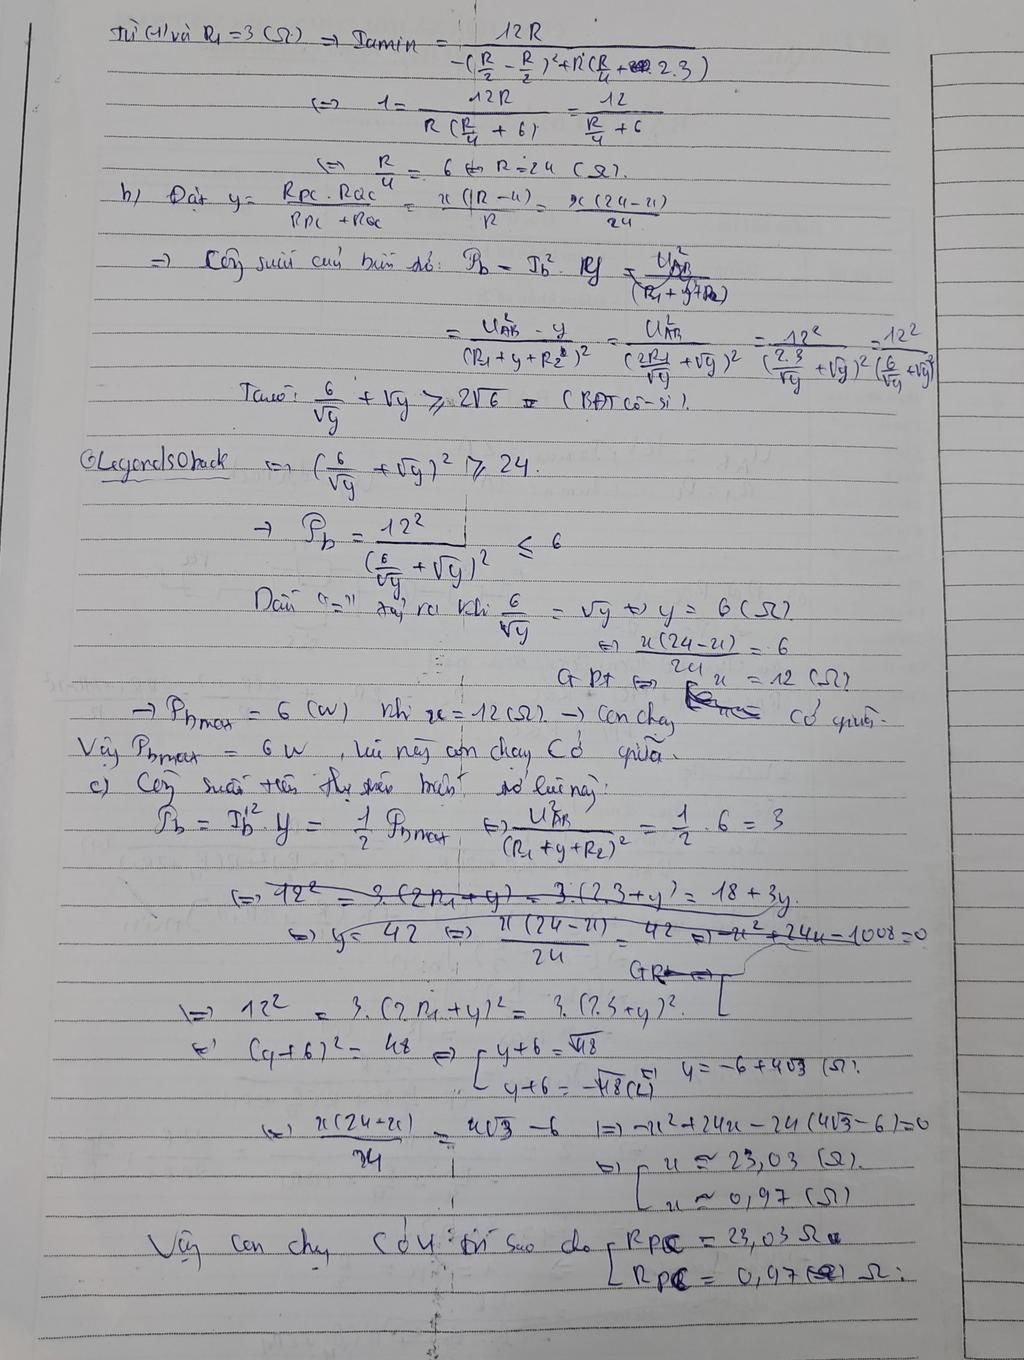 Từ (1) và R₁ = 3 (Ω) ⇒ Iamin = 12R / (-(R/2 - R/2)² + R(R/4 + 2.3))
⇔ 1 = 12R / (R(R/4 + 6)) = 12 / (R/4 + 6)
⇔ R/4 = 6 ⇔ R = 24 (Ω).
b) Đặt y = (RPC . RQC) / (RPC + RQC) = x(R-x) / R = x(24-x) / 24
⇒ Công suất của biến trở: Pb = Ib² . Ry = U²AB / (R₁ + y + R₂)
= U²AB - y / (R₁ + y + R₂)² = U²AB / (2R₁/√y + √y)² = 12² / (2.3/√y + √y)² = 12² / (6/√y + √y)²
Ta có: 6/√y + √y ≥ 2√6 (BĐT Cô-si).
@LegendsOback ⇒ (6/√y + √y)² ≥ 24.
→ Pb = 12² / (6/√y + √y)² ≤ 6
Dấu "=" xảy ra khi 6/√y = √y ⇔ y = 6 (Ω)
⇔ x(24-x) / 24 = 6
GPt ⇔ x = 12 (Ω)
→ Pbmax = 6 (W) khi x = 12 (Ω) → con chạy C ở giữa.
Vậy Pbmax = 6 W, lúc này con chạy C ở giữa.
c) Công suất tiêu thụ trên biến trở lúc này:
Pb = Ib² . y = 1/2 Pbmax ⇔ U²AB / (R₁ + y + R₂)² = 1/2 . 6 = 3
⇔ 12² = 3.(2R₁ + y) = 3.(2.3 + y) = 18 + 3y.
⇔ y = 42 ⇔ x(24-x) / 24 = 42 ⇔ -x² + 24x - 1008 = 0
GPt ⇔
⇔ 12² = 3.(2R₁ + y)² = 3.(2.3 + y)².
⇔ (y + 6)² = 48 ⇔ [ y + 6 = √48
y + 6 = -√48 (L) ⇔ y = -6 + 4√3 (Ω).
⇔ x(24-x) / 24 = 4√3 - 6 ⇔ -x² + 24x - 24(4√3 - 6) = 0
⇔ [ x ≈ 23,03 (Ω).
x ≈ 0,97 (Ω)
Vậy con chạy C ở vị trí sao cho [ RPC = 23,03 Ω
RPC = 0,97 Ω.